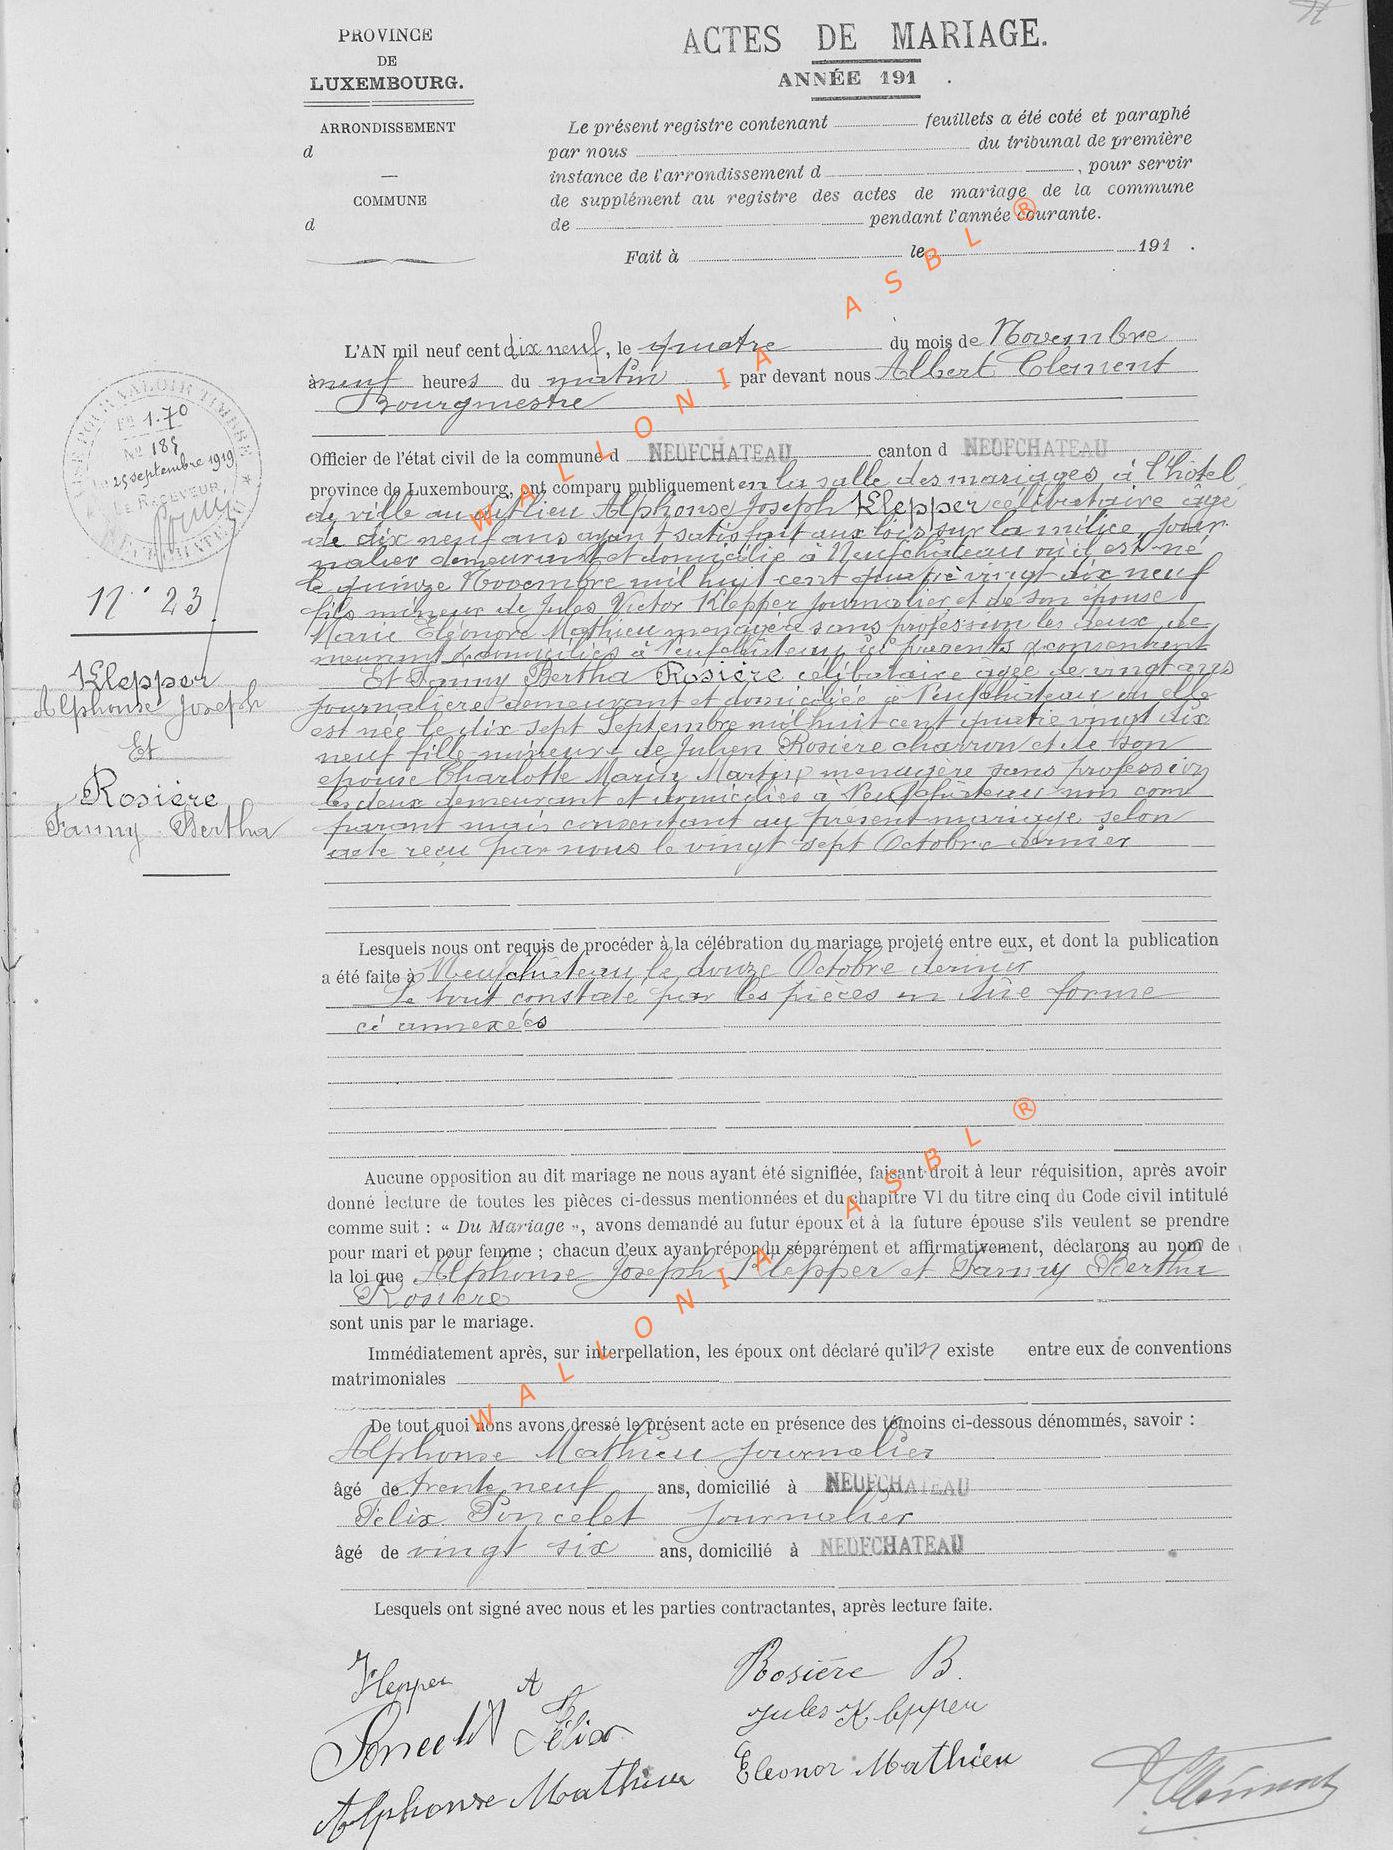 PROVINCE
DE
LUXEMBOURG.
ARRONDISSEMENT
d
COMMUNE
d
ACTES DE MARIAGE.
ANNÉE 191 .
Le présent registre contenant feuillets a été coté et paraphé
par nous du tribunal de première
instance de l'arrondissement d , pour servir
de supplément au registre des actes de mariage de la commune
de pendant l'année courante.
Fait à le 191 .
L'AN mil neuf cent dix neuf, le quatre du mois de Novembre
à neuf heures du matin par devant nous Albert Clement
Bourgmestre
Officier de l'état civil de la commune d NEUFCHATEAU canton d NEUFCHATEAU
province de Luxembourg, ont comparu publiquement en la salle des mariages à l'hôtel
de ville au dit lieu Alphonse Joseph Klepper célibataire âgé
de dix neuf ans ayant satisfait aux lois sur la milice, jour-
nalier demeurant et domicilié à Neufchâteau où il est né
le quinze Novembre mil huit cent quatre vingt dix neuf
fils mineur de Jules Victor Klepper journalier et de son épouse
Marie Eléonore Mathieu menagère sans profession les deux de
meurant & domiciliés à Neufchâteau ici présents & consentant
Et Fanny Bertha Rosière célibataire âgée de vingt ans
journalière demeurant et domiciliée à Neufchâteau où elle
est née le dix sept Septembre mil huit cent quatre vingt dix
neuf fille mineure de Julien Rosière charron et de son
épouse Charlotte Marie Martin menagère sans profession
les deux demeurant et domiciliés à Neufchâteau non com
parant mais consentant au présent mariage selon
acte reçu par nous le vingt sept Octobre dernier
POUR VALOIR TIMBRE
1.70
No 185
25 septembre 1919
LE RECEVEUR,
No 23
Klepper
Alphonse Joseph
Et
Rosière
Fanny Bertha
Lesquels nous ont requis de procéder à la célébration du mariage projeté entre eux, et dont la publication
a été faite à Neufchâteau le douze Octobre dernier
Le tout constaté par les pièces en dûe forme
ci annexées
Aucune opposition au dit mariage ne nous ayant été signifiée, faisant droit à leur réquisition, après avoir
donné lecture de toutes les pièces ci-dessus mentionnées et du chapitre VI du titre cinq du Code civil intitulé
comme suit : « Du Mariage », avons demandé au futur époux et à la future épouse s'ils veulent se prendre
pour mari et pour femme ; chacun d'eux ayant répondu séparément et affirmativement, déclarons au nom de
la loi que Alphonse Joseph Klepper et Fanny Bertha
Rosière
sont unis par le mariage.
Immédiatement après, sur interpellation, les époux ont déclaré qu'il n existe entre eux de conventions
matrimoniales
De tout quoi nons avons dressé le présent acte en présence des témoins ci-dessous dénommés, savoir :
Alphonse Mathieu journalier
âgé de trente neuf ans, domicilié à NEUFCHATEAU
Félix Poncelet journalier
âgé de vingt six ans, domicilié à NEUFCHATEAU
Lesquels ont signé avec nous et les parties contractantes, après lecture faite.
Klepper A
Rosière B.
Poncelet Félix
Jules Klepper
Alphonse Mathieu
Eleonor Mathieu
AClément
WALLONIA ASBL ®
WALLONIA ASBL ®